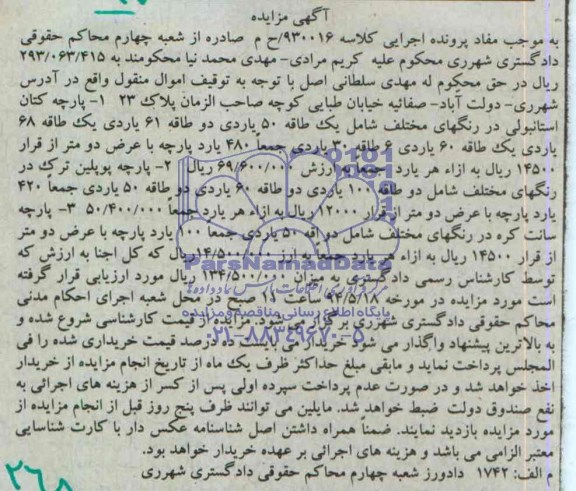 آگهی مزایده
به موجب مفاد پرونده اجرایی کلاسه ۹۳۰۰۱۶/ح م صادره از شعبه چهارم محاکم حقوقی
دادگستری شهرری محکوم علیه کریم مرادی- مهدی محمد نیا محکومند به ۲۹۳/۰۶۳/۴۱۵
ریال در حق محکوم له مهدی سلطانی اصل با توجه به توقیف اموال منقول واقع در آدرس
شهرری- دولت آباد- صفائیه خیابان طبایی کوچه صاحب الزمان پلاک ۲۳ ۱- پارچه کتان
استانبولی در رنگهای مختلف شامل یک طاقه ۵۰ یاردی دو طاقه ۶۱ یاردی یک طاقه ۶۸
یاردی یک طاقه ۶۰ یاردی ۶ طاقه ۳۰ یاردی جمعاً ۴۸۰ یارد پارچه با عرض دو متر از قرار
۱۴۵۰۰ ریال به ازاء هر یارد جمعاً به ارزش ۶۹/۶۰۰/۰۰۰ ریال ۲- پارچه پوپلین ترک در
رنگهای مختلف شامل دو طاقه ۱۰۰ یاردی دو طاقه ۶۰ یاردی دو طاقه ۵۰ یاردی جمعاً ۴۲۰
یارد پارچه با عرض دو متر از قرار ۱۲۰۰۰ ریال به ازاء هر یارد جمعاً ۵۰/۴۰۰/۰۰۰ ۳- پارچه
سانت کره در رنگهای مختلف شامل دو طاقه ۵۰ یاردی جمعاً ۱۰۰ یارد پارچه با عرض دو متر
از قرار ۱۴۵۰۰ ریال به ازاء هر یارد جمعاً به ارزش ۱۴/۵۰۰/۰۰۰ ریال که کل اجنا به ارزش که
توسط کارشناس رسمی دادگستری به میزان ۱۳۴/۵۰۰/۰۰۰ ریال مورد ارزیابی قرار گرفته
است مورد مزایده در مورخه ۹۴/۵/۱۸ ساعت ۱۱ صبح در محل شعبه اجرای احکام مدنی
محاکم حقوقی دادگستری شهرری برگزار می شود. مزایده از قیمت کارشناسی شروع شده و
به بالاترین پیشنهاد واگذار می شود خریدار می بایست ده درصد قیمت خریداری شده را فی
المجلس پرداخت نماید و مابقی مبلغ حداکثر ظرف یک ماه از تاریخ انجام مزایده از خریدار
اخذ خواهد شد و در صورت عدم پرداخت سپرده اولی پس از کسر از هزینه های اجرائی به
نفع صندوق دولت ضبط خواهد شد. مایلین می توانند ظرف پنج روز قبل از انجام مزایده از
مورد مزایده بازدید نمایند. ضمناً همراه داشتن اصل شناسنامه عکس دار با کارت شناسایی
معتبر الزامی می باشد و هزینه های اجرائی بر عهده خریدار خواهد بود.
م الف: ۱۷۴۲ دادورز شعبه چهارم محاکم حقوقی دادگستری شهرری
ParsNamadData
پایگاه اطلاع رسانی مناقصه و مزایده
۰۲۱-۸۸۳۴۹۶۷۰-۵